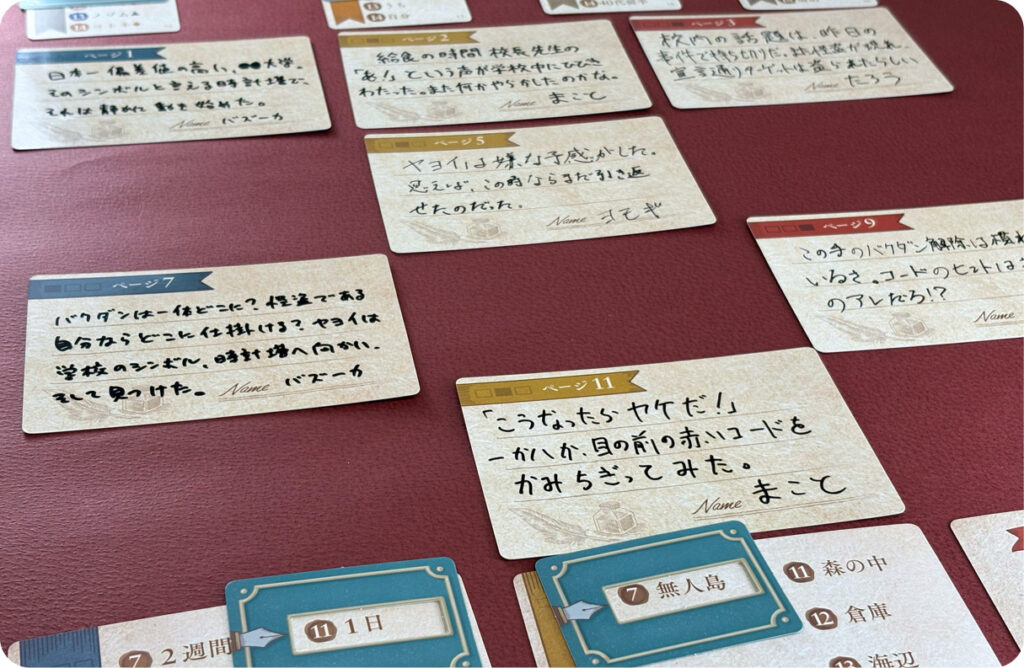 13
うち
14
自分
14
40代
ページ1
日本一偏差値の高い、●●大学。
そのシンボルと言える時計塔で、
それは静かに動き始めた。
Name バズーカ
ページ2
給食の時間 校長先生の
「あ!」という声が学校中にひびき
わたった。また何かやらかしたのかな。
Name まこと
ページ3
校内の話題は、昨日の
事件で持ち切りだ。怪盗が現れ、
宣言通りターゲットは盗られたらしい
Name たろう
ページ5
ヤヨイは嫌な予感がした。
思えば、この時ならまだ引き返
せたのだった。
Name ヨモギ
ページ7
バクダンは一体どこに?怪盗である
自分ならどこに仕掛ける?ヤヨイは
学校のシンボル、時計塔へ向かい、
そして見つけた。
Name バズーカ
ページ9
この手のバクダン解除は
いるさ。コードのヒントは
のアレだろ!?
Name
ページ11
「こうなったらヤケだ!」
一かハか、目の前の赤いコードを
かみちぎってみた。
Name まこと
7 2週間
11 1日
7 無人島
11 森の中
12 倉庫
13 海辺